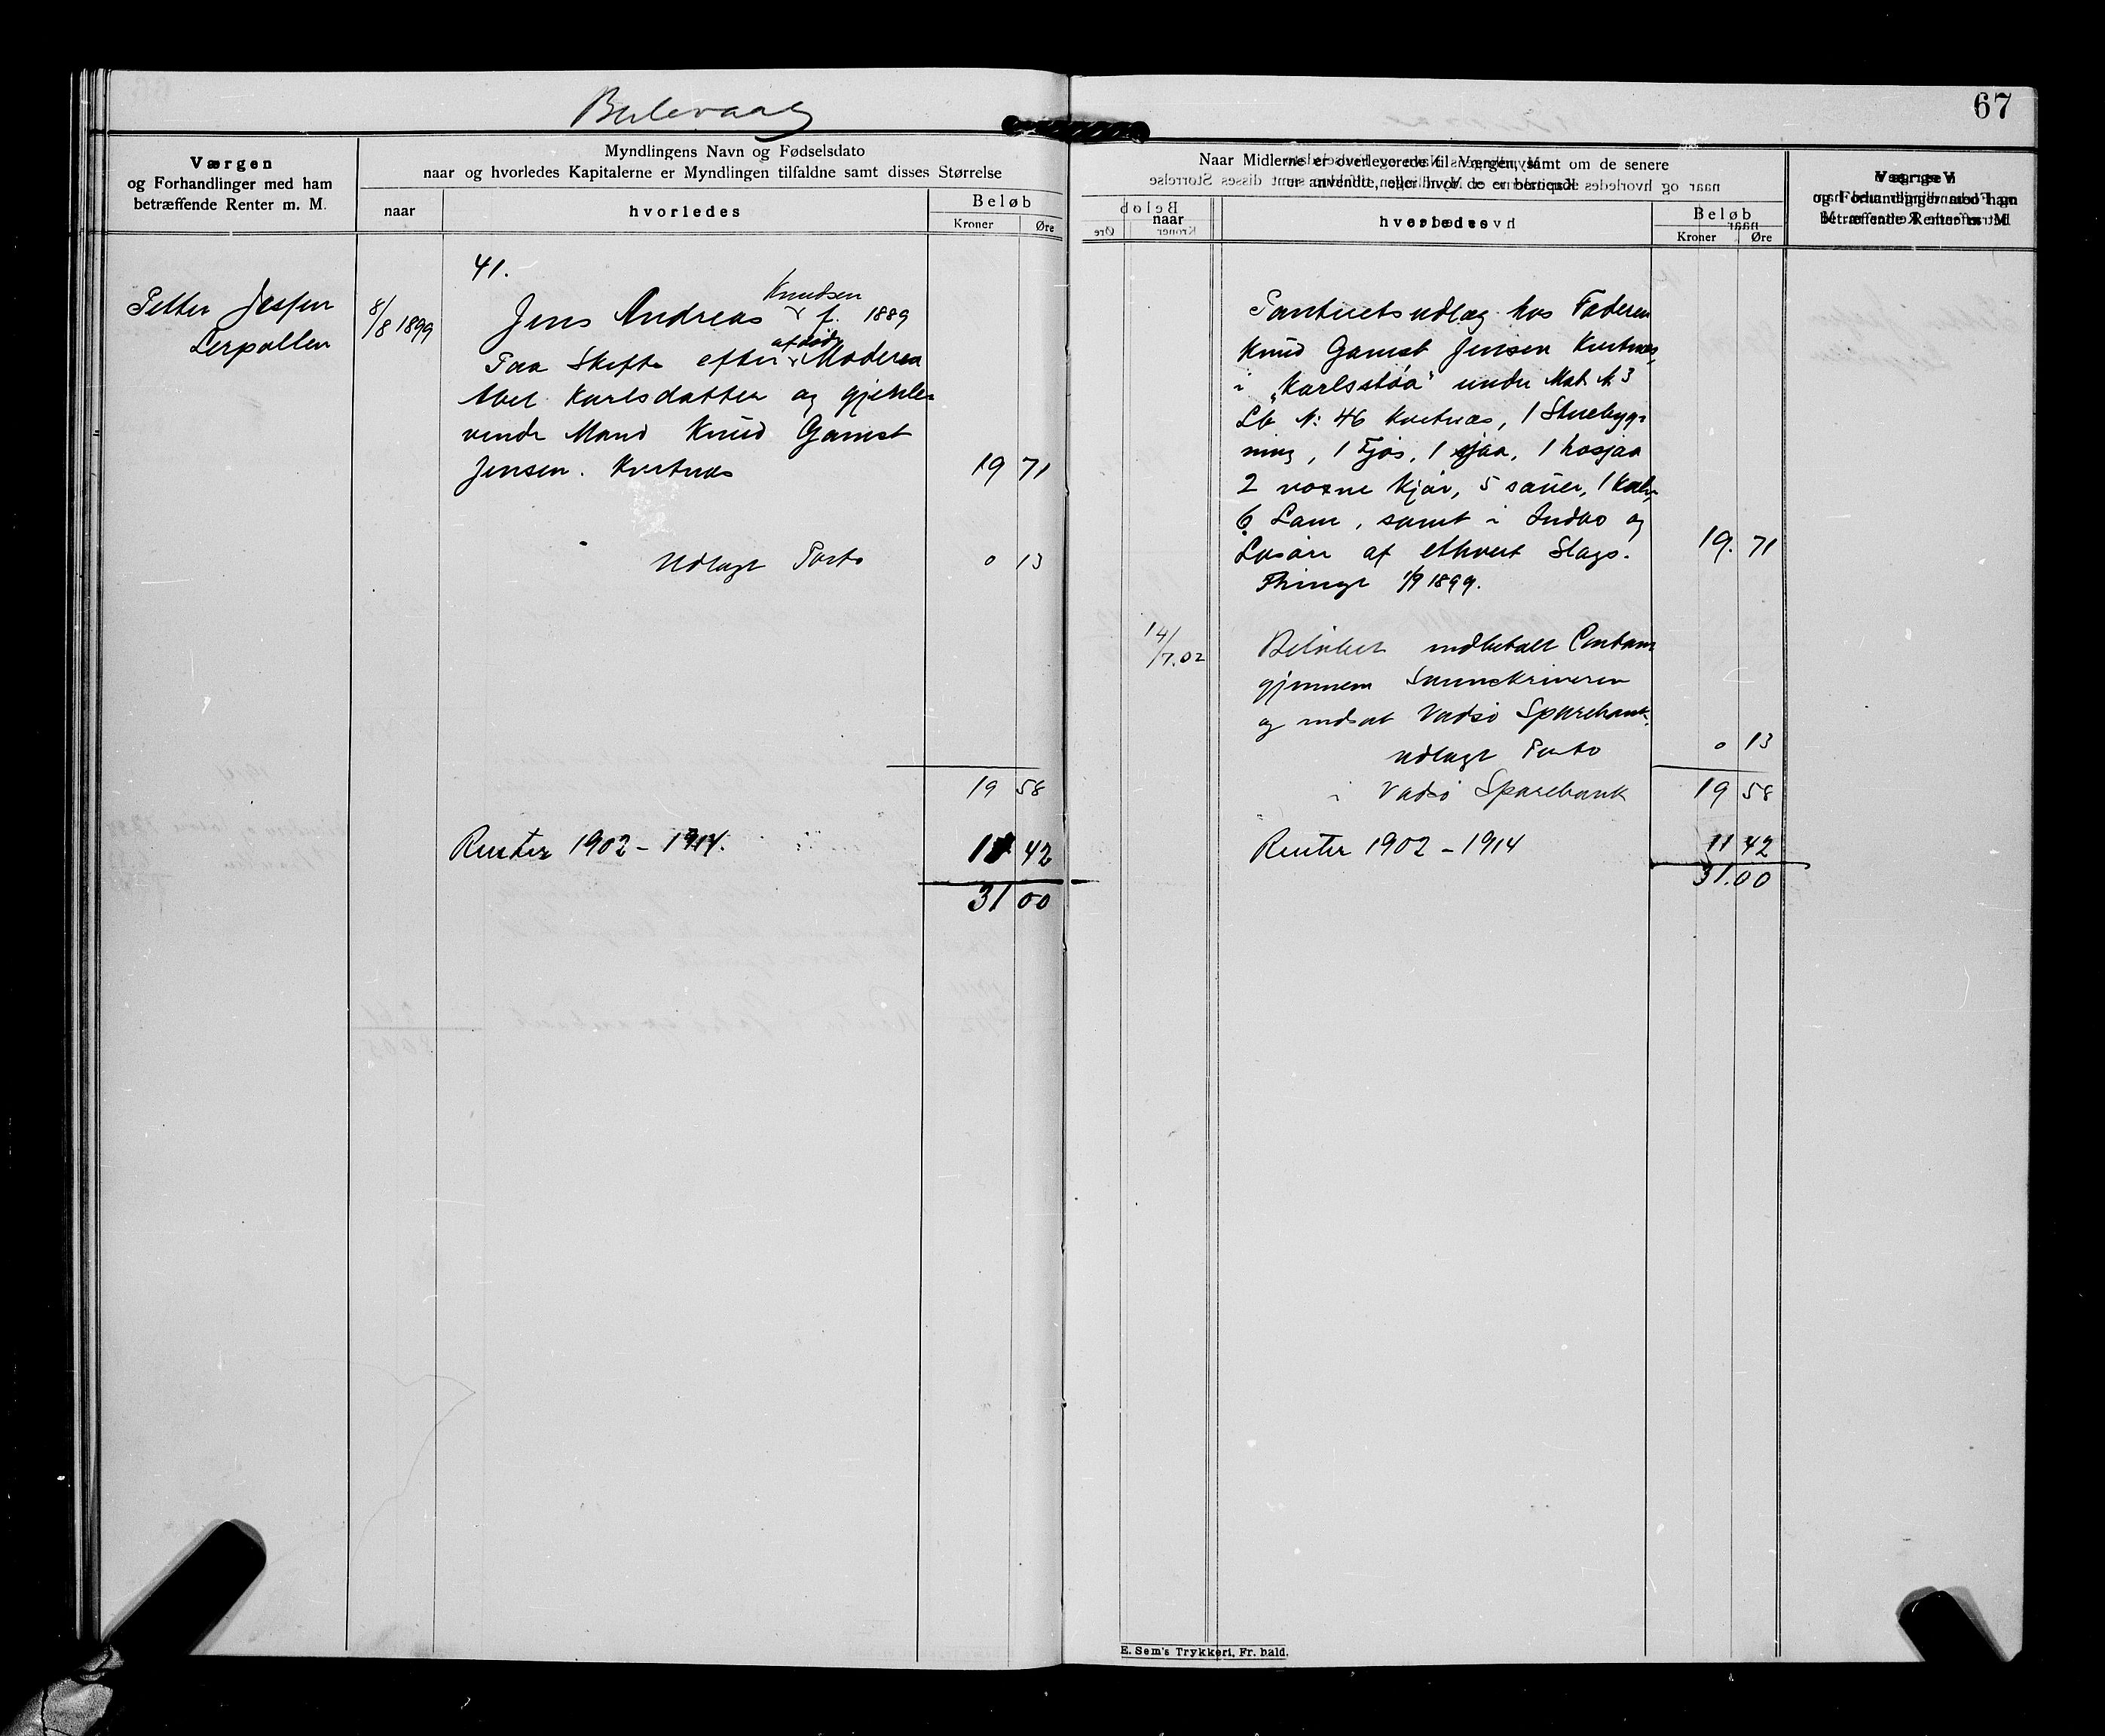 Bulevaag
67
Værgen
og Forhandlinger med ham
betræffende Renter m. M.
Myndlingens Navn og Fødselsdato
naar og hvorledes Kapitalerne er Myndlingen tilfaldne samt disses Størrelse
naar
hvorledes
Beløb
Kroner
Øre
Petter Jessen
Lerpollen
8/8 1899
41.
Knudsen
Jens Andreas f. 1889
afdøde
Paa Skifte efter Moderen
Abel Karlsdatter og gjenle-
vende Mand Knud Gamst
Jensen. Kvitnæs
19 71
Udlagt Porto
0 13
19 58
Renter 1902 - 1914.
11 42
31 00
Naar Midlerne er overleverede til Værgen, samt om de senere
er anvendte, eller hvor de er beroende
naar
hvorledes
Beløb
Kroner
Øre
Værgen
og Forhandlinger med ham
betræffende Renter m. M.
Panteretsudlæg hos Faderen
Knud Gamst Jensen Kvitnæs,
i "Karlsstøa" under Mat. N. 3
Lb N: 46 Kvitnæs, 1 Stuebyg-
ning, 1 Fjøs, 1 sjaa, 1 høsjaa
2 voxne Kjør, 5 sauer, 1 Kalv,
6 Lam, samt i Indbo og
Løsøre af ethvert Slags.
19. 71
Thingl 1/9 1899.
14/7.02
Beløbet indbetalt Contant
gjennem Sorenskriveren
og indsat Vadsø Sparebank.
Udlagt Porto
0 13
i Vadsø Sparebank
19 58
Renter 1902 - 1914
11 42
31.00
E. Sem's Trykkeri, Fr. hald.